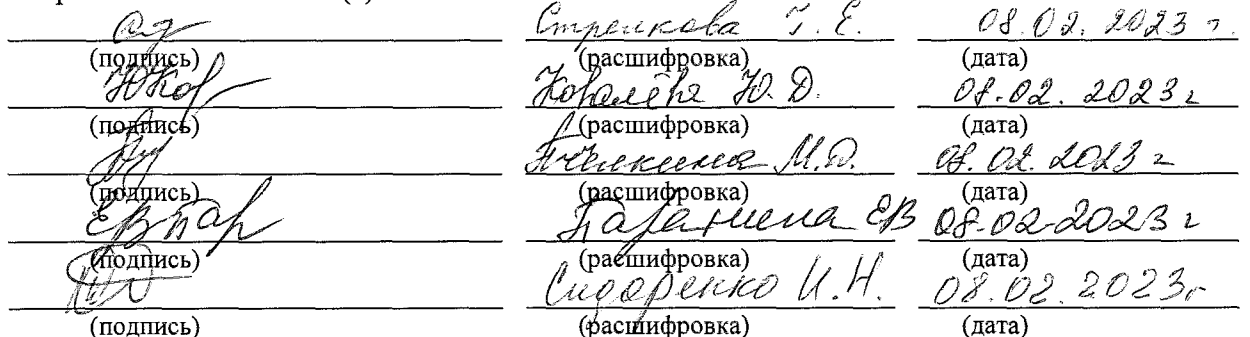 Стрелкова Т. Е. 08.02.2023 г.
(подпись) (расшифровка) (дата)
ЮКов Ковалёва Ю. D. 08.02.2023 г
(подпись) (расшифровка) (дата)
Пчелкина М.D. 08.02.2023 г
(подпись) (расшифровка) (дата)
ЕВПар Паранина ЕВ 08-02-2023 г
(подпись) (расшифровка) (дата)
Сидоренко И.Н. 08.02.2023г
(подпись) (расшифровка) (дата)